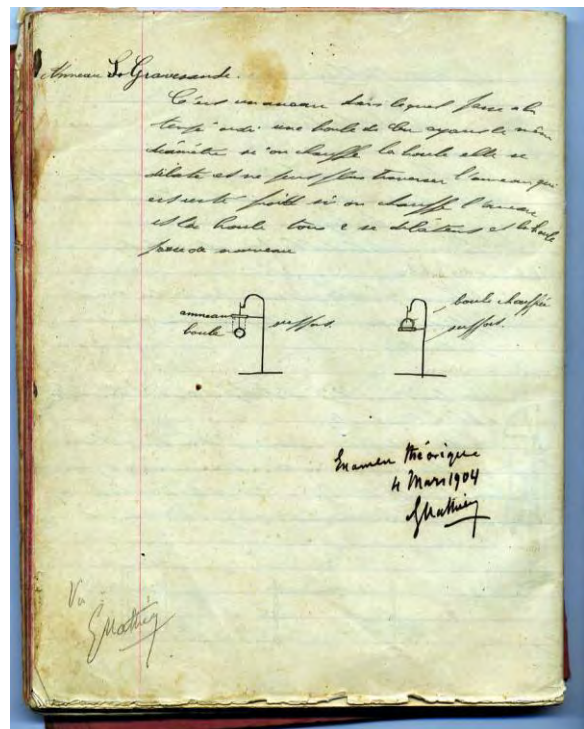 Anneau S'Gravesande.
C'est un anneau dans lequel passe à la
temp ordi une boule de Cu ayant le même
diamètre si on chauffe la boule elle se
dilate et ne peut plus traverser l'anneau qui
est resté froid si on chauffe l'anneau
et la boule tous 2 se dilatent et la boule
passe de nouveau
anneau
boule
support.
boule chauffée
support.
Examen théorique
4 Mars 1904
GMathieu
Vu
GMathieu